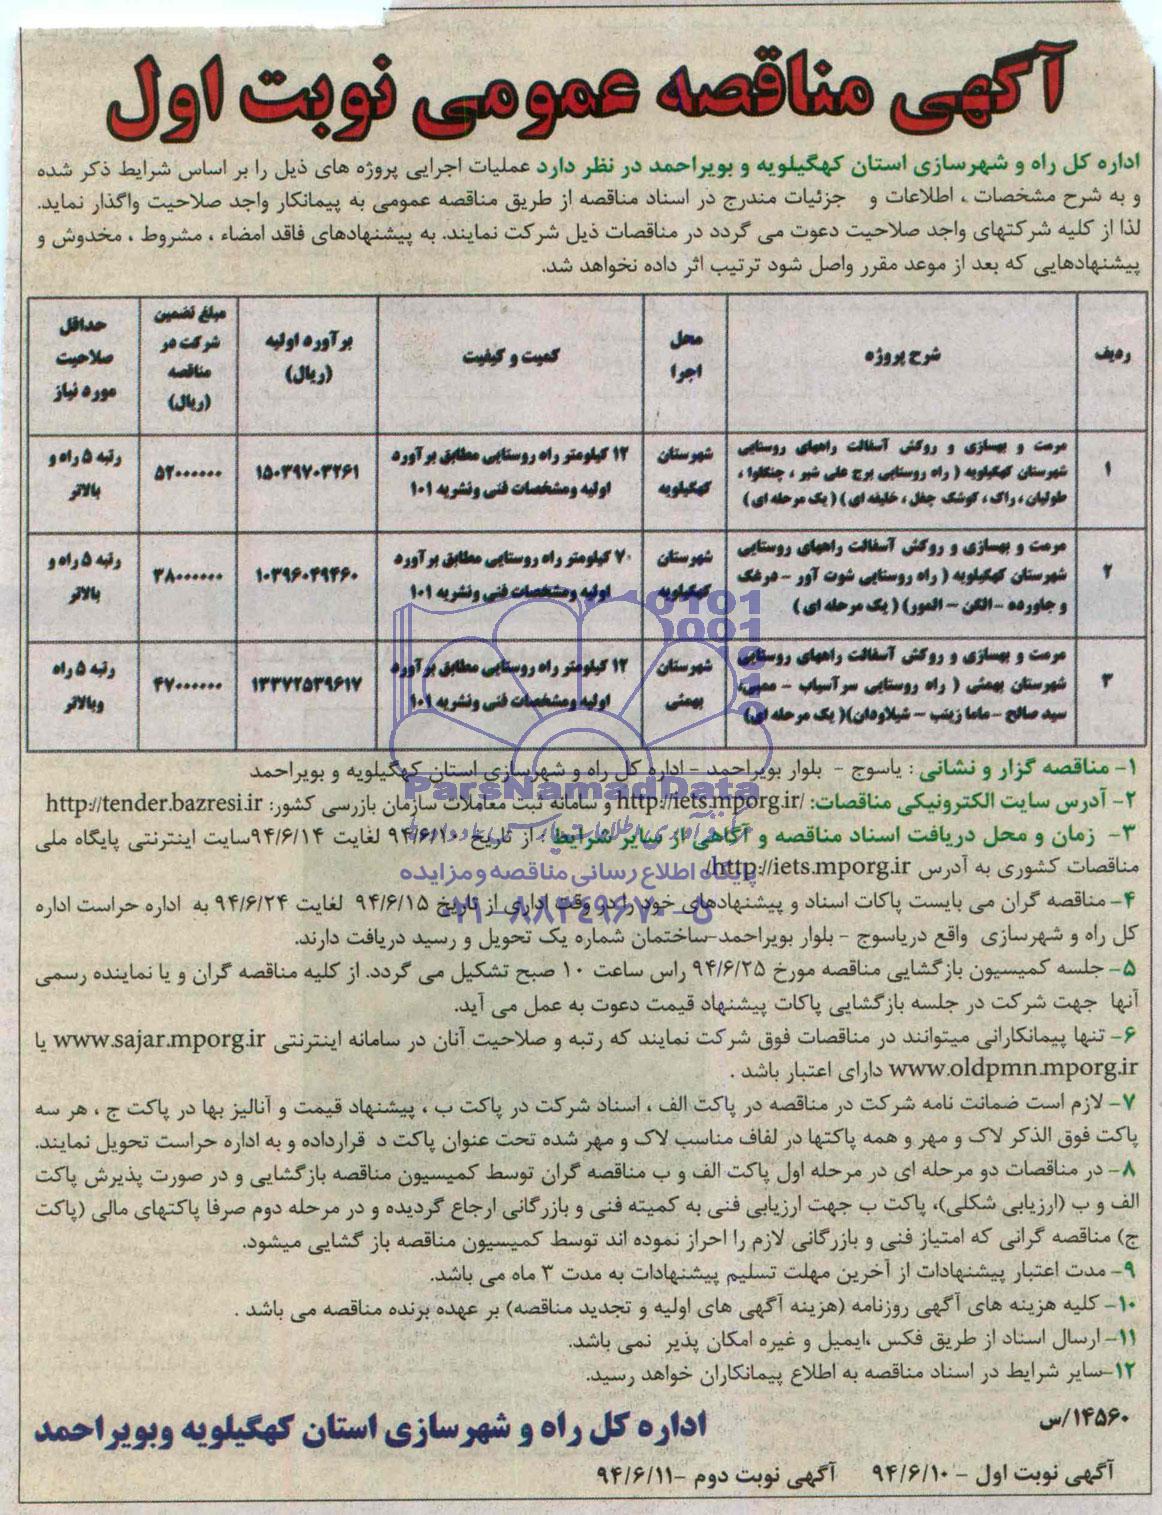 آگهی مناقصه عمومی نوبت اول
اداره کل راه و شهرسازی استان کهگیلویه و بویراحمد در نظر دارد عملیات اجرایی پروژه های ذیل را بر اساس شرایط ذکر شده
و به شرح مشخصات ، اطلاعات و جزئیات مندرج در اسناد مناقصه از طریق مناقصه عمومی به پیمانکار واجد صلاحیت واگذار نماید.
لذا از کلیه شرکتهای واجد صلاحیت دعوت می گردد در مناقصات ذیل شرکت نمایند. به پیشنهادهای فاقد امضاء ، مشروط ، مخدوش و
پیشنهادهایی که بعد از موعد مقرر واصل شود ترتیب اثر داده نخواهد شد.
ردیف
شرح پروژه
محل
اجرا
کمیت و کیفیت
برآورد اولیه
(ریال)
مبلغ تضمین
شرکت در
مناقصه
(ریال)
حداقل
صلاحیت
مورد نیاز
۱
مرمت و بهسازی و روکش آسفالت راههای روستایی
شهرستان کهگیلویه ( راه روستایی برج علی شیر ، چنگلوا ،
طولیان ، راک ، کوشک جفل ، خلیفه ای) ( یک مرحله ای )
شهرستان
کهگیلویه
۱۲ کیلومتر راه روستایی مطابق برآورد
اولیه ومشخصات فنی ونشریه ۱۰۱
۱۵۰۳۹۷۰۳۲۶۱
۵۲۰۰۰۰۰۰۰
رتبه ۵ راه و
بالاتر
۲
مرمت و بهسازی و روکش آسفالت راههای روستایی
شهرستان کهگیلویه ( راه روستایی شوت آور - درغک
و جاورده - الکن - المور) ( یک مرحله ای )
شهرستان
کهگیلویه
۷۰ کیلومتر راه روستایی مطابق برآورد
اولیه ومشخصات فنی ونشریه ۱۰۱
۱۰۳۹۶۰۴۹۴۶۰
۳۸۰۰۰۰۰۰۰
رتبه ۵ راه و
بالاتر
۳
مرمت و بهسازی و روکش آسفالت راههای روستایی
شهرستان بهمئی ( راه روستایی سرآسیاب - ممبی،
سید صالح - ماما زینب - شیلاودان)( یک مرحله ای)
شهرستان
بهمئی
۱۲ کیلومتر راه روستایی مطابق برآورد
اولیه ومشخصات فنی ونشریه ۱۰۱
۱۳۳۷۲۵۳۹۶۱۷
۴۷۰۰۰۰۰۰۰
رتبه ۵ راه
وبالاتر
۱- مناقصه گزار و نشانی : یاسوج - بلوار بویراحمد - اداره کل راه و شهرسازی استان کهگیلویه و بویراحمد
۲- آدرس سایت الکترونیکی مناقصات: http://iets.mporg.ir/ و سامانه ثبت معاملات سازمان بازرسی کشور: http://tender.bazresi.ir
۳- زمان و محل دریافت اسناد مناقصه و آگاهی از سایر شرایط : از تاریخ ۹۴/۶/۱۰ لغایت ۹۴/۶/۱۴سایت اینترنتی پایگاه ملی
مناقصات کشوری به آدرس http://iets.mporg.ir/
۴- مناقصه گران می بایست پاکات اسناد و پیشنهادهای خود را دو وقت اداری از تاریخ ۹۴/۶/۱۵ لغایت ۹۴/۶/۲۴ به اداره حراست اداره
کل راه و شهرسازی واقع دریاسوج - بلوار بویراحمد-ساختمان شماره یک تحویل و رسید دریافت دارند.
۵- جلسه کمیسیون بازگشایی مناقصه مورخ ۹۴/۶/۲۵ راس ساعت ۱۰ صبح تشکیل می گردد. از کلیه مناقصه گران و یا نماینده رسمی
آنها جهت شرکت در جلسه بازگشایی پاکات پیشنهاد قیمت دعوت به عمل می آید.
۶- تنها پیمانکارانی میتوانند در مناقصات فوق شرکت نمایند که رتبه و صلاحیت آنان در سامانه اینترنتی www.sajar.mporg.ir یا
www.oldpmn.mporg.ir دارای اعتبار باشد .
۷- لازم است ضمانت نامه شرکت در مناقصه در پاکت الف ، اسناد شرکت در پاکت ب ، پیشنهاد قیمت و آنالیز بها در پاکت ج ، هر سه
پاکت فوق الذکر لاک و مهر و همه پاکتها در لفاف مناسب لاک و مهر شده تحت عنوان پاکت د قرارداده و به اداره حراست تحویل نمایند.
۸- در مناقصات دو مرحله ای در مرحله اول پاکت الف و ب مناقصه گران توسط کمیسیون مناقصه بازگشایی و در صورت پذیرش پاکت
الف و ب (ارزیابی شکلی)، پاکت ب جهت ارزیابی فنی به کمیته فنی و بازرگانی ارجاع گردیده و در مرحله دوم صرفا پاکتهای مالی (پاکت
ج) مناقصه گرانی که امتیاز فنی و بازرگانی لازم را احراز نموده اند توسط کمیسیون مناقصه باز گشایی میشود.
۹- مدت اعتبار پیشنهادات از آخرین مهلت تسلیم پیشنهادات به مدت ۳ ماه می باشد.
۱۰- کلیه هزینه های آگهی روزنامه (هزینه آگهی های اولیه و تجدید مناقصه) بر عهده برنده مناقصه می باشد .
۱۱- ارسال اسناد از طریق فکس ،ایمیل و غیره امکان پذیر نمی باشد.
۱۲-سایر شرایط در اسناد مناقصه به اطلاع پیمانکاران خواهد رسید.
۱۴۵۶۰/س
اداره کل راه و شهرسازی استان کهگیلویه وبویراحمد
آگهی نوبت اول - ۹۴/۶/۱۰ آگهی نوبت دوم -۹۴/۶/۱۱
ParsNamadData
پایگاه اطلاع رسانی مناقصه و مزایده
۰۲۱-۸۸۳۴۹۶۷۰-۵